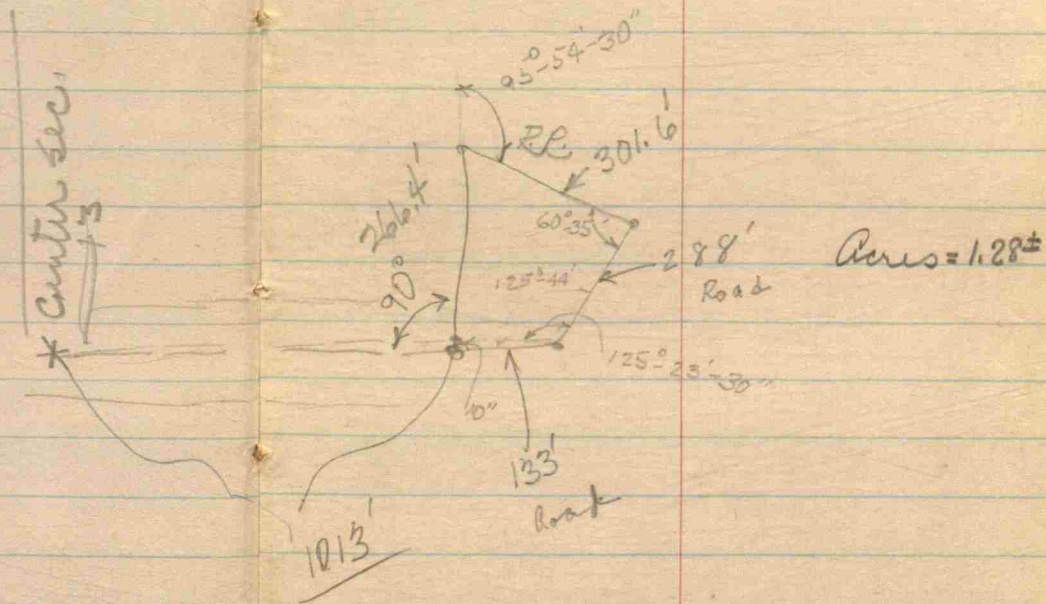 Center sec.
13
95°-54'-30"
R.R.
301.6'
266.4'
90°
60°-35'
288'
Road
125°-44'
125°-23'-30"
133'
Road
1013'
Acres = 1.28±